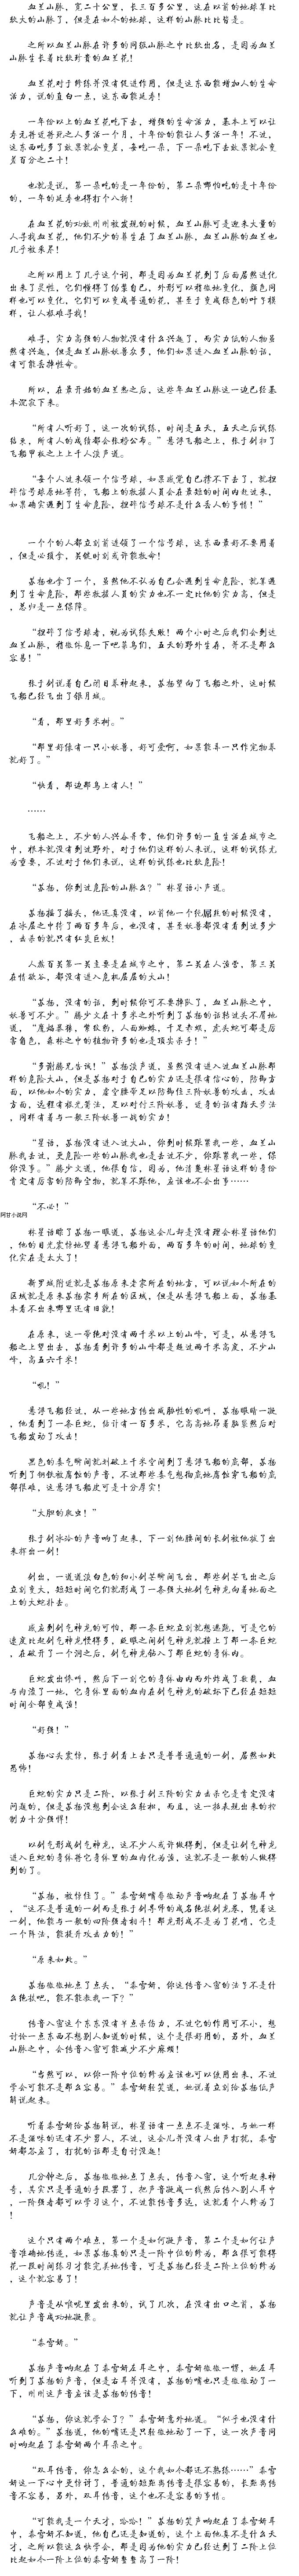 血兰山脉，宽二十公里，长三百多公里，这在以前的地球算比
较大的山脉了，但是在如今的地球，这样的山脉比比皆是。
之所以血兰山脉在许多的同级山脉之中比较出名，是因为血兰
山脉生长着比较珍贵的血兰花！
血兰花对于修炼并没有促进作用，但是这东西能增加人的生命
活力，说的直白一点，这东西能延寿！
一年份以上的血兰花吃下去，增强的生命活力，基本上可以让
寿元将近将死之人多活一个月，十年份的能让人多活一年！不过，
这东西吃多了效果就会变差，每吃一朵，下一朵吃下去效果就会变
差百分之二十！
也就是说，第一朵吃的是一年份的，第二朵哪怕吃的是十年份
的，一年的延寿也得打个八折！
在血兰花的功效刚刚被发现的时候，血兰山脉可是迎来大量的
人寻找血兰花，他们不少的葬生在了血兰山脉，血兰山脉的血兰也
几乎被采尽！
之所以用上了几乎这个词，那是因为血兰花到了后面居然进化
出来了灵性，它们懂得了伪装自己，外形可以稍微地变化，颜色同
样也可以变化，它们可以变成普通的花，甚至于变成绿色的叶子模
样，让人极难寻找！
难寻，实力高强的人物就没有什么兴趣了，而实力低的人物虽
然有兴趣，但是血兰山脉妖兽众多，他们如果进入血兰山脉的话，
有可能丢掉性命。
所以，在最开始的血兰热之后，这些年血兰山脉这一边已经基
本沉寂下来。
“所有人听好了，这一次的试炼，时间是五天，五天之后试炼
结束，所有人的成绩都会张榜公布。”悬浮飞船之上，张子剑扫了
飞船甲板之上上千人淡声道。
“每个人过来领一个信号球，如果感觉自己撑不下去了，就捏
碎信号球原地等待，飞船上的救援人员会在最短的时间内赶过来，
如果确实遇到了生命危险，捏碎信号球不是什么丢人的事情！”
一个个的人都立刻前进领了一个信号球，这东西最好不要用着
，但是必须拿，关键时刻或许能救命！
苏扬也拿了一个，虽然他不认为自己会遇到生命危险，就算遇
到了生命危险，那些救援人员的实力也不一定比他的实力高，但是
，总归是一点保障。
“捏碎了信号球者，视为试炼失败！两个小时之后我们会到达
血兰山脉，稍微休息一下吧菜鸟们，五天的野外生存，并不是那么
容易！”
张子剑说着自己闭目养神起来，苏扬望向了飞船之外，这时候
飞船已经飞出了银月城。
“看，那里好多米树。”
“那里好像有一只小妖兽，好可爱啊，如果能弄一只作宠物养
就好了。”
“快看，那边那鸟上有人！”
……
飞船之上，不少的人兴奋异常，他们许多的一直生活在城市之
中，根本就没有到达野外，对于他们这样的人来说，这样的试炼尤
为重要，不过对于他们来说，这样的试炼也比较危险！
“苏扬，你到过危险的山脉么？”林星语小声道。
苏扬摇了摇头，他还真没有，以前他一个轮屌丝的时候没有，
在冰层之中待了两百多年后，也没有，甚至妖兽都没有看到过多少
，击杀的就只有红炎巨蚁！
人熬百关第一关主要是在城市之中，第二关在人活营，第三关
在情欲谷，都没有进入危机层层的大山！
“苏扬，没有的话，到时候你可不要掉队了，血兰山脉之中，
妖兽可不少。”滕少文在十多米之外听到了苏扬的话转过头不屑地
道，“魔焰暴猿，紫纹豹，人面蜘蛛，千足赤蜈，虎头蛇可都是厉
害角色，森林之中的植物许多的也是顶尖杀手！”
“多谢滕兄告诫！”苏扬淡声道，虽然没有进入过血兰山脉那
样的危险大山，但是苏扬对于自己的实力还是很有信心的，防御方
面，以他如今的实力，虚空腰带足以防御住三阶妖兽的攻击，攻击
方面，远程有极光箭法，足以对付三阶妖兽，近身的话有踏天步法
，同样有着与一般三阶妖兽一战的实力！
“星语，苏扬没有进入过大山，你到时候跟紧我一些，血兰山
脉我去过，更危险一些的山脉我也是去过不少，你跟紧我一些，保
你没事。”滕少文道，他很自信，因为，他清楚林星语这样的身份
肯定有厉害的防御宝物，就算不跟他，应该也不会出事……
“不必！”
阿甘小说网
林星语瞟了苏扬一眼道，苏扬这会儿却是没有理会林星语他们
，他的目光震惊地望着悬浮飞船外面，两百多年的时间，地球的变
化实在是太大了！
新罗城附近就是苏扬原来老家所在的地方，可以说如今所在的
区域就是原来苏扬家乡所在的区域，但是从悬浮飞船上面，苏扬基
本看不出来哪里还有旧貌！
在原来，这一带绝对没有两千米以上的山峰，可是，从悬浮飞
船之上望出去，苏扬看到许多的山峰都是超过两千米高度，不少山
峰，高五六千米！
“吼！”
悬浮飞船经过，从一些地方传出威胁性的吼叫，苏扬眼睛一凝
，他看到了一条巨蛇，估计有一百多米，它高高地昂着脑袋然后对
飞船发动了攻击！
黑色的毒气瞬间就刺破上千米空间到了悬浮飞船的底部，苏扬
听到了钢铁被腐蚀的声音，不过那些毒气想彻底地腐蚀穿飞船的底
部很难，这悬浮飞船皮可是十分厚实！
“大胆的爬虫！”
张子剑冰冷的声音响了起来，下一刻他腰间的长剑被他拔了出
来挥出一剑！
剑出，一道道淡白色的细小剑芒瞬间飞出，那些剑芒飞出之后
立刻变大，短短时间它们就形成了一条强大地剑气神龙向着地面之
上的大蛇扑去。
感应到剑气神龙的可怕，那一条巨蛇立刻就想逃跑，可是它的
速度比起剑气神龙慢得多，眨眼之间剑气神龙就撞上了那一条巨蛇
，在破开了一个洞之后，剑气神龙钻入了那巨蛇的身体内。
巨蛇发出惨叫，然后下一刻它的身体由内而外炸成了数截，血
与肉混了一地，它身体里面的血肉在剑气神龙的破坏下已经在短短
时间全部变成渣！
“好强！”
苏扬心头震惊，张子剑看上去只是普普通通的一剑，居然如此
恐怖！
巨蛇的实力只是二阶，以张子剑三阶的实力击杀它是肯定没有
问题的，但是苏扬没想到会这么轻松，而且，这一招表现出来的控
制力十分强悍！
以剑气形成剑气神龙，这不少人或许做得到，但是让剑气神龙
进入巨蛇的身体将它身体里的血肉化为渣，这就不是一般的人做得
到的了。
“苏扬，被惊住了。”秦雪妍嘴唇微动声音响起在了苏扬耳中
，“这不是普通的一剑而是张子剑导师的成名绝技剑龙卷，凭着这
一剑，他能与一般的四阶强者相斗！那龙形成不是为了花哨，它是
一个阵法，能提升攻击力的！”
“原来如此。”
苏扬微微地点了点头，“秦雪妍，你这传音入密的法子不是什
么绝技吧，能不能教我一下？”
传音入密这个东东没有半点杀伤力，不过它的作用可不小，想
讨论一点东西不想别人知道的时候，这个是很好用的，另外，血兰
山脉之中，会传音入密可能减少不少麻烦！
“当然可以，以你一阶中位的修为应该也可以使用出来，不过
学会可能不是那么容易。”秦雪妍轻笑道，她说着立刻给苏扬低声
解说起来。
听着秦雪妍给苏扬解说，林星语有一点点不是滋味，与她一样
不是滋味的还有不少男人，不过，这会儿并没有人出声打扰，秦雪
妍都答应了，打扰的话那是自讨没趣！
几分钟之后，苏扬微微地点了点头，传音入密，这个听起来神
奇，其实只是普通的手段罢了，把声音凝成一线然后传入别人耳中
，一阶强者都可以学习这个，不过能传音多远，这就看个人修为了
！
这个只有两个难点，第一个是如何凝声音，第二个是如何让声
音准确地传递，如果苏扬真的只是一阶中位的修为，那么很可能得
花一段时间练习才能完美地传音，可是苏扬已经是二阶上位的修为
，这个就容易了！
声音是从喉咙里发出来的，试了几次，在没有出口之前，苏扬
就让声音成功地凝聚。
“秦雪妍。”
苏扬声音响起在了秦雪妍左耳之中，秦雪妍微微一愣，她左耳
听到了苏扬的声音，但是右耳并没有，苏扬的嘴也只是微微地动了一
下，刚刚这声音应该是苏扬的传音！
“苏扬，你这就学会了？”秦雪妍意外地道。“似乎也没有什
么难的。”苏扬道，他的嘴还是只轻微地动了一下，这一次声音同
时响起在了秦雪妍两个耳朵之中。
“双耳传音，你怎么会的，这个我如今都还不熟练……”秦雪
妍这一下心中更惊讶了，普通的短距离传音是很容易的，长距离传
音不容易，另外，双耳传音，这个也不是容易的事情。
“可能我是一个天才，哈哈！”苏扬的笑声响起在了秦雪妍耳
中，秦雪妍不知道，他自己还是知道的，这个上面他真不是什么天
才，之所以能这么快学会，那是因为他的实力已经达到了二阶上位
比起如今一阶上位的秦雪妍整整高了一阶！